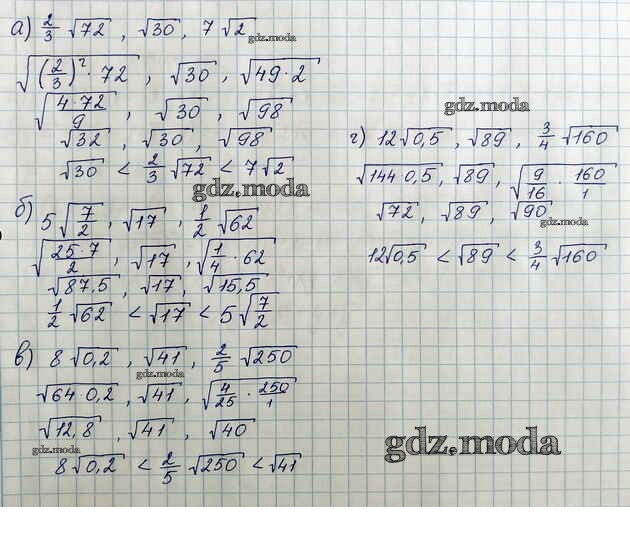 а) 2/3 √72, √30, 7√2
gdz.moda
√((2/3)² · 72), √30, √(49·2)
√(4·72/9), √30, √98
√32, √30, √98
√30 < 2/3 √72 < 7√2
gdz.moda
б) 5√(7/2), √17, 1/2 √62
√(25·7/2), √17, √(1/4 · 62)
√87,5, √17, √15,5
1/2 √62 < √17 < 5√(7/2)
в) 8√0,2, √41, 2/5 √250
gdz.moda
√(64·0,2), √41, √(4/25 · 250/1)
√12,8, √41, √40
gdz.moda
8√0,2 < 2/5 √250 < √41
gdz.moda
г) 12√0,5, √89, 3/4 √160
√(144·0,5), √89, √(9/16 · 160/1)
√72, √89, √90
gdz.moda
12√0,5 < √89 < 3/4 √160
gdz.moda